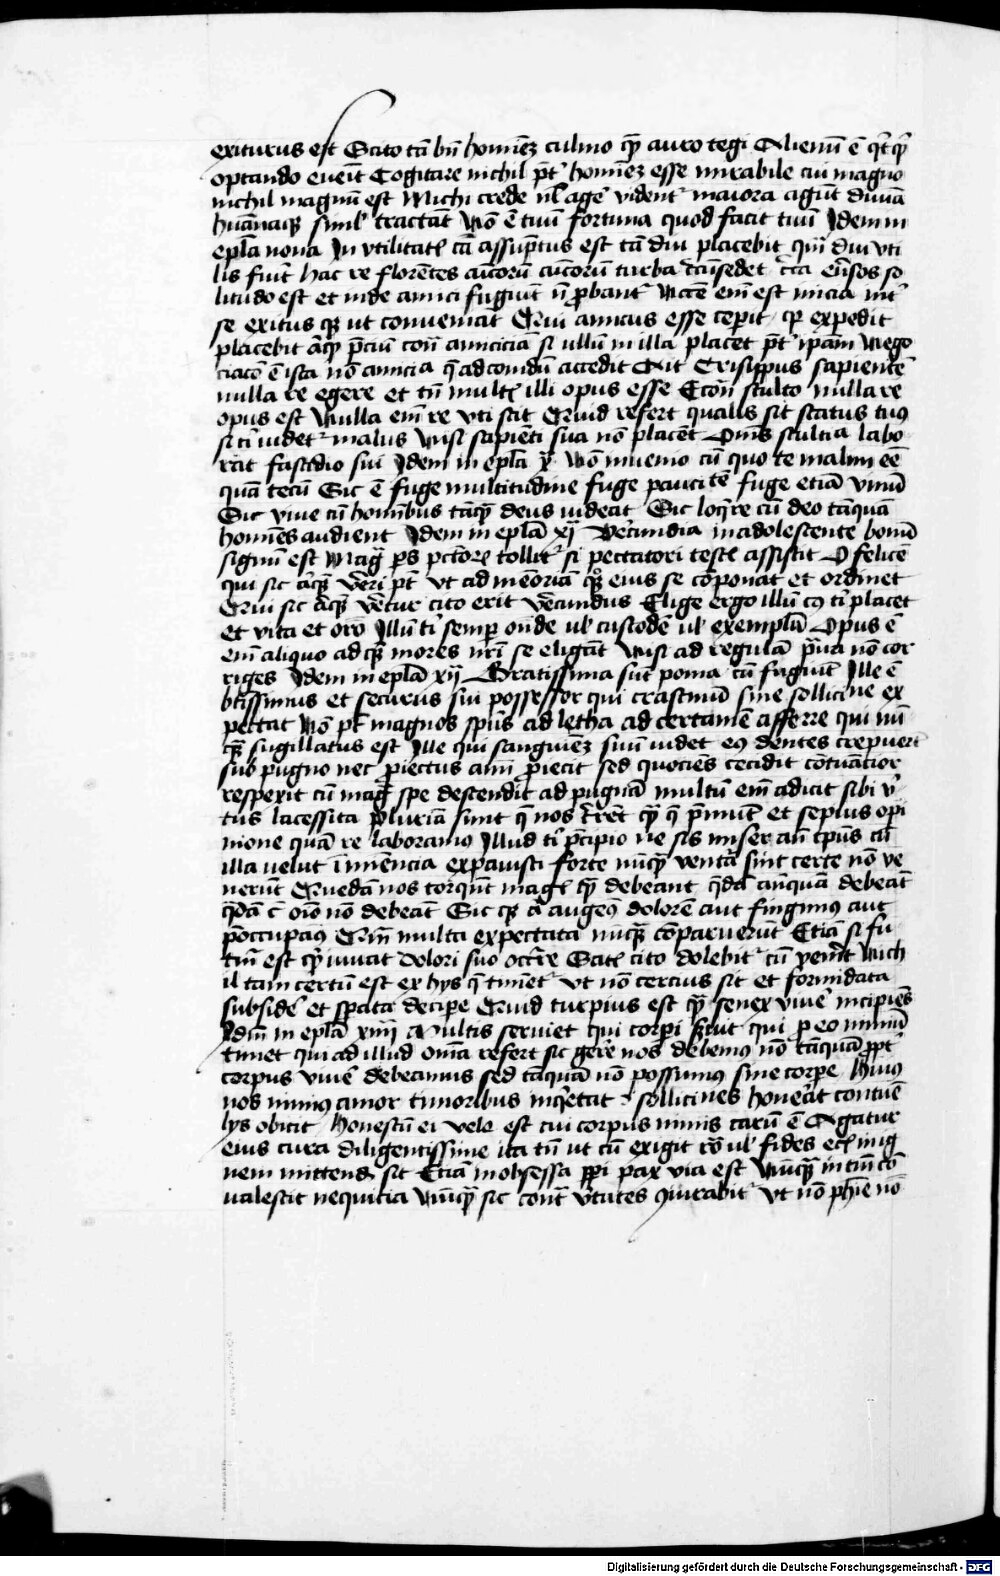 exiturus est Scito tā bn̄ hominēz culmo qȝ auro tegi Alienū ē qͥcqͥ
optando euenit Cogitare nichil pōt hominēz esse mirabile cui magno
nichil magnum est Michi crede nl̄ agē videntʳ maiora agūt diuīa
hūanaqȝ simul tractāt Nō ē tuū fortuna quod facit tuū Idem in
epl̄a nona In vtilitatē cā assūptus est tā diu placebit quādiu vti
lis fuīt hac re florētes amicorū turba circūsedet circa euersos so
litudo est et inde amici fugiūt vbi ꝓbantʳ Necē em̄ est inicia int̄
se exitus qȝ ut conueniāt Qui amicus esse cepit qȝ expedit
placebit aliqȝ preciū contra amiciciā si ullū in illa placet pt̄ ipam̄ Nego
ciacō ē ista nō amicicia q̄ ad comodū accedit Ait Crisippus sapientē
nulla re egere et tn̄ mult̄ illi opus esse Econͣ stulto nulla re
opus est Nulla em̄ re vti scit Quid refert qualis sit status tuus
si tͥ videtʳ malus Nisi sapienti sua nō placēt Omīs stultia labo
rat fastidio sui Idem in epl̄a xͣ Nō inuenio cū quo te malim eē
quā tecū Sic ē fuge multitudinē fuge paucitē fuge etiā vnum
Sic viue cū hominibus tāqȝ deus videat Sic loqͥre cū deo tāquā
homines audient Idem in epl̄a xj Verecundia in adolescente bonū
signū est Maḡ ps pctor̄ tollitʳ si peccatori testis assistit O felicē
qui sic aliquē vereri pt̄ vt ad memoriā quoqȝ eius se cōponat et ordinet
Qui sic aliquē veretur cito erit verecundus Elige ergo illū cuius tͥ placet
et vita et orō Illū tͥ semp̄ ondē ul̓ custodē ul̓ exemplū Opus ē
em̄ aliquo ad quē mores nr̄i se eligāt Nisi ad regulā praua nō cor
riges Idem in epl̄a xij Gratissima sūt poma cū fugiūt Ille ē
btissimus et securus sui possessor qui crastinū sine sollicine ex
pectat Nō pt̄ magnos sp̄us ad letha ad certamē afferre qui nū
qȝ sugillatus est Ille qui sanguinēz suū videt eius dentes crepuert̄
sub pugno nec proiectus aīm proiecit sed quociēs cecidit cōtumacior
respexit cū maḡ spe descendit ad pugnā multū em̄ adicit sibi vir
tus lacessita Pluria sunt q̄ nos terrēt qȝ q̄ premūt et sepius opi
nione quā re laboramus Illud tͥ precipio ne sis miser an̄ tpus cū
illa velut īminencia expauisti forte nūqȝ ventura sint certe nō ve
nerūt Quedā nos torqūt magis qȝ debeant qdā anquā debeāt
qdā c̄ oīo nō debeāt Sic qȝ aut augemus dolorē aut fingimus aut
preoccupamus Quā multa expectata nūqȝ cōparuerūt Etiā si fu
turū est qȝ iuuat dolori suo occurrere Satis cito dolebitʳ cū venerit Nich
il tam certum est ex hijs q̄ timētʳ vt nō cercius sit et formidata
subsidē et sperata decipe Quid turpius est qȝ senex viuē incipiēs
Idm̄ in epl̄a xiiij Multis seruiet qui corpi seruit qui p eo nimiū
timet qui ad illud omīa refert sic gerere nos debemus nō tāquā propt̄
corpus viuē debeamus sed tāquā nō possumus sine corpe Huius
nos nimius amor timoribus inqͥetat sollicines honerat contumē
lijs obicit Honestū ei vile est cui corpus nimis carū ē Agatur
eius cura diligentissime ita tn̄ ut cū exigit ro ul̓ fides ecl̄ in ig
nem mittend̄ sit Etiā in obsessa ppi pax via est Nūqȝ in tm̄ cō
ualescit nequitia Nūqȝ sic contͣ virtutes coniurabitʳ vt nō phīe nō
Digitalisierung gefördert durch die Deutsche Forschungsgemeinschaft - DFG